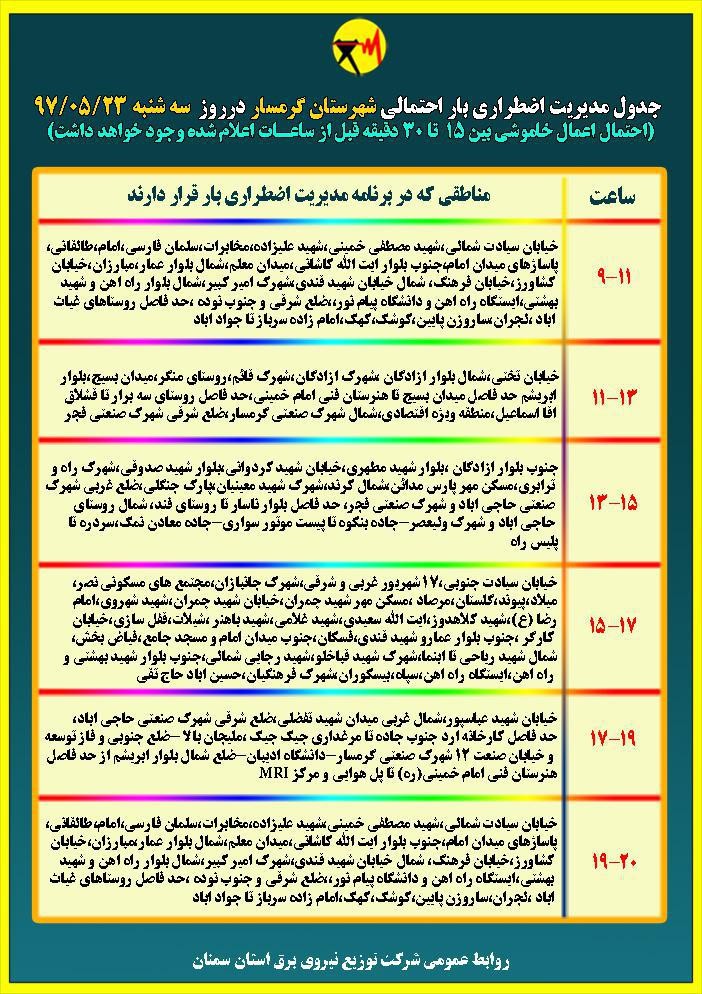 جدول مدیریت اضطراری بار احتمالی شهرستان گرمسار درروز سه شنبه ۹۷/۰۵/۲۳
(احتمال اعمال خاموشی بین ۱۵ تا ۳۰ دقیقه قبل از ساعـــات اعلام شده وجود خواهد داشت)
ساعت
مناطقی که در برنامه مدیریت اضطراری بار قرار دارند
۹-۱۱
خیابان سیادت شمالی،شهید مصطفی خمینی،شهید علیزاده،مخابرات،سلمان فارسی،امام،طالقانی،
پاساژهای میدان امام،جنوب بلوار ایت الله کاشانی،میدان معلم،شمال بلوار عمار،مبارزان،خیابان
کشاورز،خیابان فرهنگ، شمال خیابان شهید قندی،شهرک امیر کبیر،شمال بلوار راه اهن و شهید
بهشتی،ایستگاه راه اهن و دانشگاه پیام نور،،ضلع شرقی و جنوب نوده ،حد فاصل روستاهای غیاث
اباد ،نجران،ساروزن پایین،کوشک،کهک،امام زاده سرباز تا جواد اباد
۱۱-۱۳
خیابان تختی،شمال بلوار ازادگان ،شهرک ازادگان،شهرک قائم،روستای منگر،میدان بسیج،بلوار
ابریشم حد فاصل میدان بسیج تا هنرستان فنی امام خمینی،حد فاصل روستای سه برار تا قشلاق
اقا اسماعیل،منطقه ویژه اقتصادی،شمال شهرک صنعتی گرمسار،ضلع شرقی شهرک صنعتی فجر
۱۳-۱۵
جنوب بلوار ازادگان ،بلوار شهید مطهری،خیابان شهید کردوانی،بلوار شهید صدوقی،شهرک راه و
ترابری،مسکن مهر پارس مدائن،شمال کرند،شهرک شهید معینیان،پارک جنگلی،ضلع غربی شهرک
صنعتی حاجی اباد و شهرک صنعتی فجر، حد فاصل بلوار ناسار تا روستای فند، شمال روستای
حاجی اباد و شهرک ولیعصر-جاده بنکوه تا پیست موتور سواری-جاده معادن نمک،سردره تا
پلیس راه
۱۵-۱۷
خیابان سیادت جنوبی،۱۷شهریور غربی و شرقی،شهرک جانبازان،مجتمع های مسکونی نصر،
میلاد،پیوند،گلستان،مرصاد ،مسکن مهر شهید چمران،خیابان شهید چمران،شهید شهروی،امام
رضا (ع)،شهید کلاهدوز،ایت الله سعیدی،شهید غلامی،شهید باهنر ،شیلات،قفل سازی،خیابان
کارگر ،جنوب بلوار عمارو شهید قندی،فسکان،جنوب میدان امام و مسجد جامع،فیاض بخش،
شمال شهید ریاحی تا ابنما،شهرک شهید فیاخلو،شهید رجایی شمالی،جنوب بلوار شهید بهشتی و
راه اهن،ایستگاه راه اهن،سپاه،بیسکوران،شهرک فرهنگیان،حسین اباد حاج تقی
۱۷-۱۹
خیابان شهید عباسپور،شمال غربی میدان شهید تفضلی،ضلع شرقی شهرک صنعتی حاجی اباد،
حد فاصل کارخانه ارد جنوب جاده تا مرغداری جیک جیک ،ملیجان بالا -ضلع جنوبی و فاز توسعه
و خیابان صنعت ۱۲ شهرک صنعتی گرمسار-دانشگاه ادیبان-ضلع شمال بلوار ابریشم از حد فاصل
هنرستان فنی امام خمینی(ره) تا پل هوایی و مرکز MRI
۱۹-۲۰
خیابان سیادت شمالی،شهید مصطفی خمینی،شهید علیزاده،مخابرات،سلمان فارسی،امام،طالقانی،
پاساژهای میدان امام،جنوب بلوار ایت الله کاشانی،میدان معلم،شمال بلوار عمار،مبارزان،خیابان
کشاورز،خیابان فرهنگ، شمال خیابان شهید قندی،شهرک امیر کبیر،شمال بلوار راه اهن و شهید
بهشتی،ایستگاه راه اهن و دانشگاه پیام نور،،ضلع شرقی و جنوب نوده ،حد فاصل روستاهای غیاث
اباد ،نجران،ساروزن پایین،کوشک،کهک،امام زاده سرباز تا جواد اباد
روابط عمومی شرکت توزیع نیروی برق استان سمنان